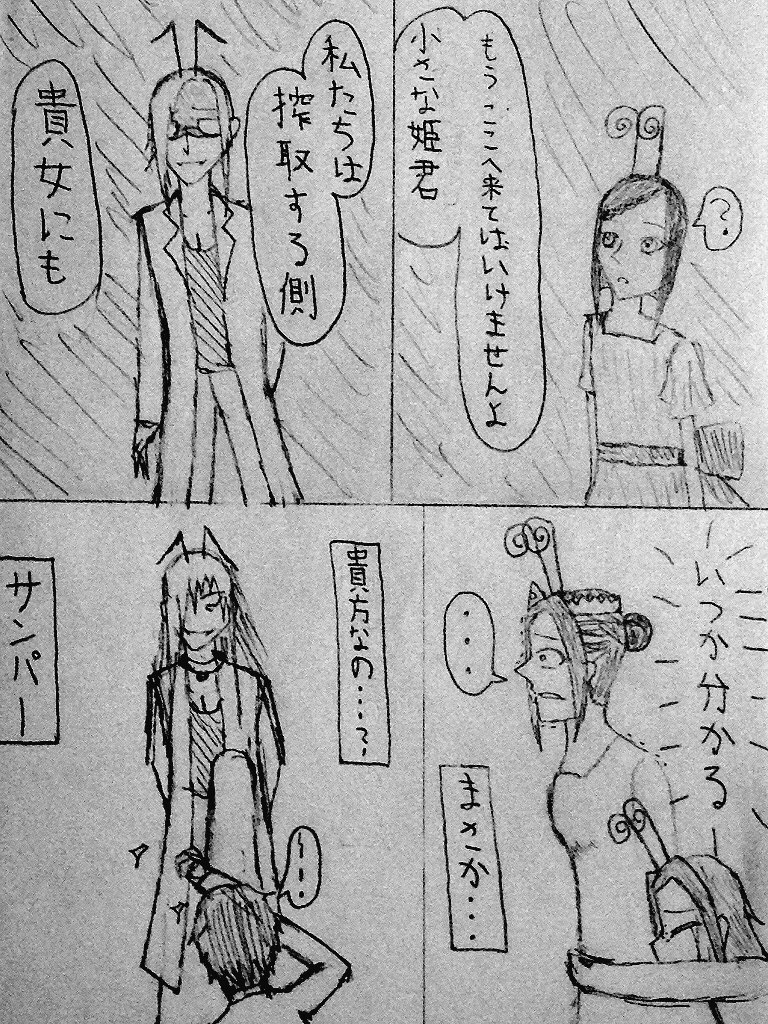 ？
もうここへ来てはいけませんよ
小さな姫君
私たちは
搾取する側
貴女にも
いつか分かる
・・・
まさか・・・
貴方なの・・・？
・・・
サンパー